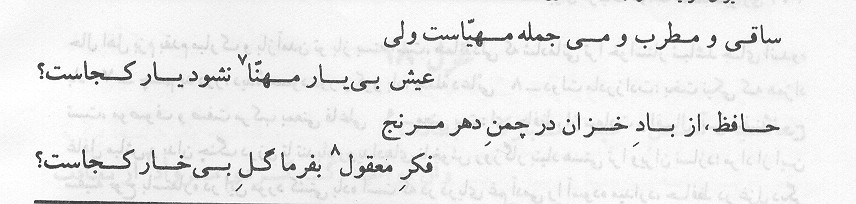 ساقی و مطرب و می جمله مهیّاست ولی
عیش بی‌یار مهنّا۷ نشود یار کجاست؟
حافظ، از بادِ خزان در چمنِ دهر مرنج
فکرِ معقول۸ بفرما گلِ بی‌خار کجاست؟